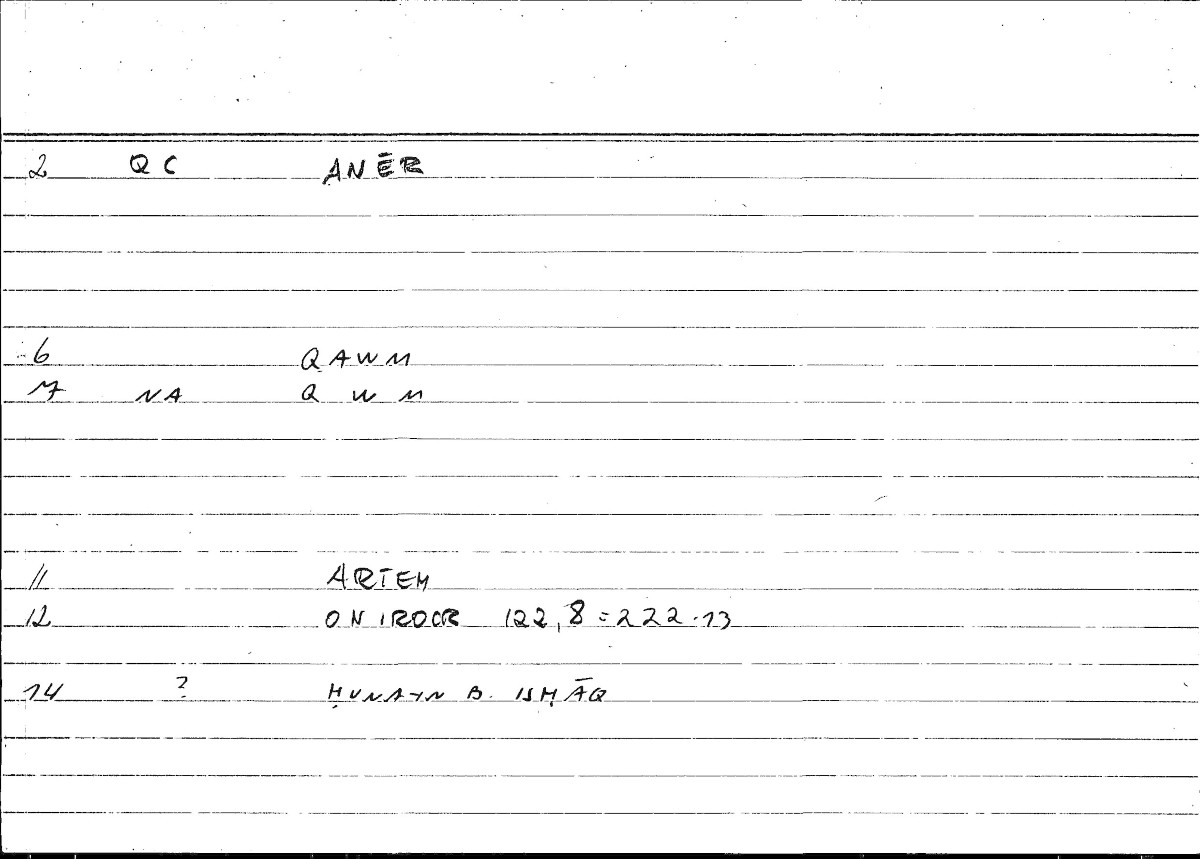 2 QC ANĒR
6 QAWM
7 NA Q W M
11 ARTEM
12 ONIROCR 122,8=222.13
14 ? ḤUNAYN B. ISḤĀQ